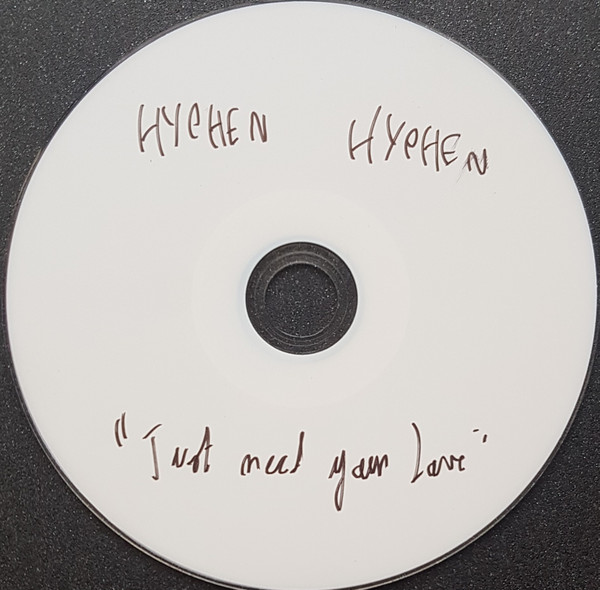 HYPHEN HYPHEN
"Just need your Love"